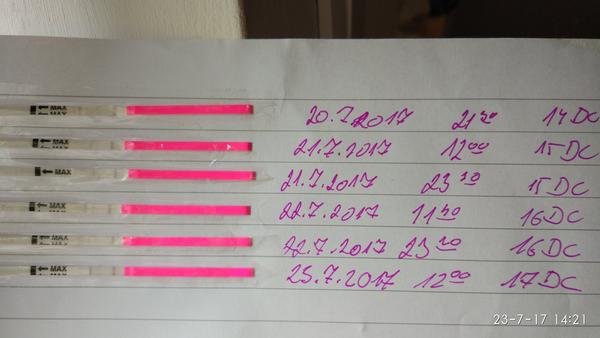 MAX 20.7.2017 21 20 14 DC
MAX 21.7.2017 12 00 15 DC
MAX 21.7.2017 23 30 15 DC
MAX 22.7.2017 11 40 16 DC
MAX 22.7.2017 23 20 16 DC
MAX 23.7.2017 12 00 17 DC
23-7-17 14:21